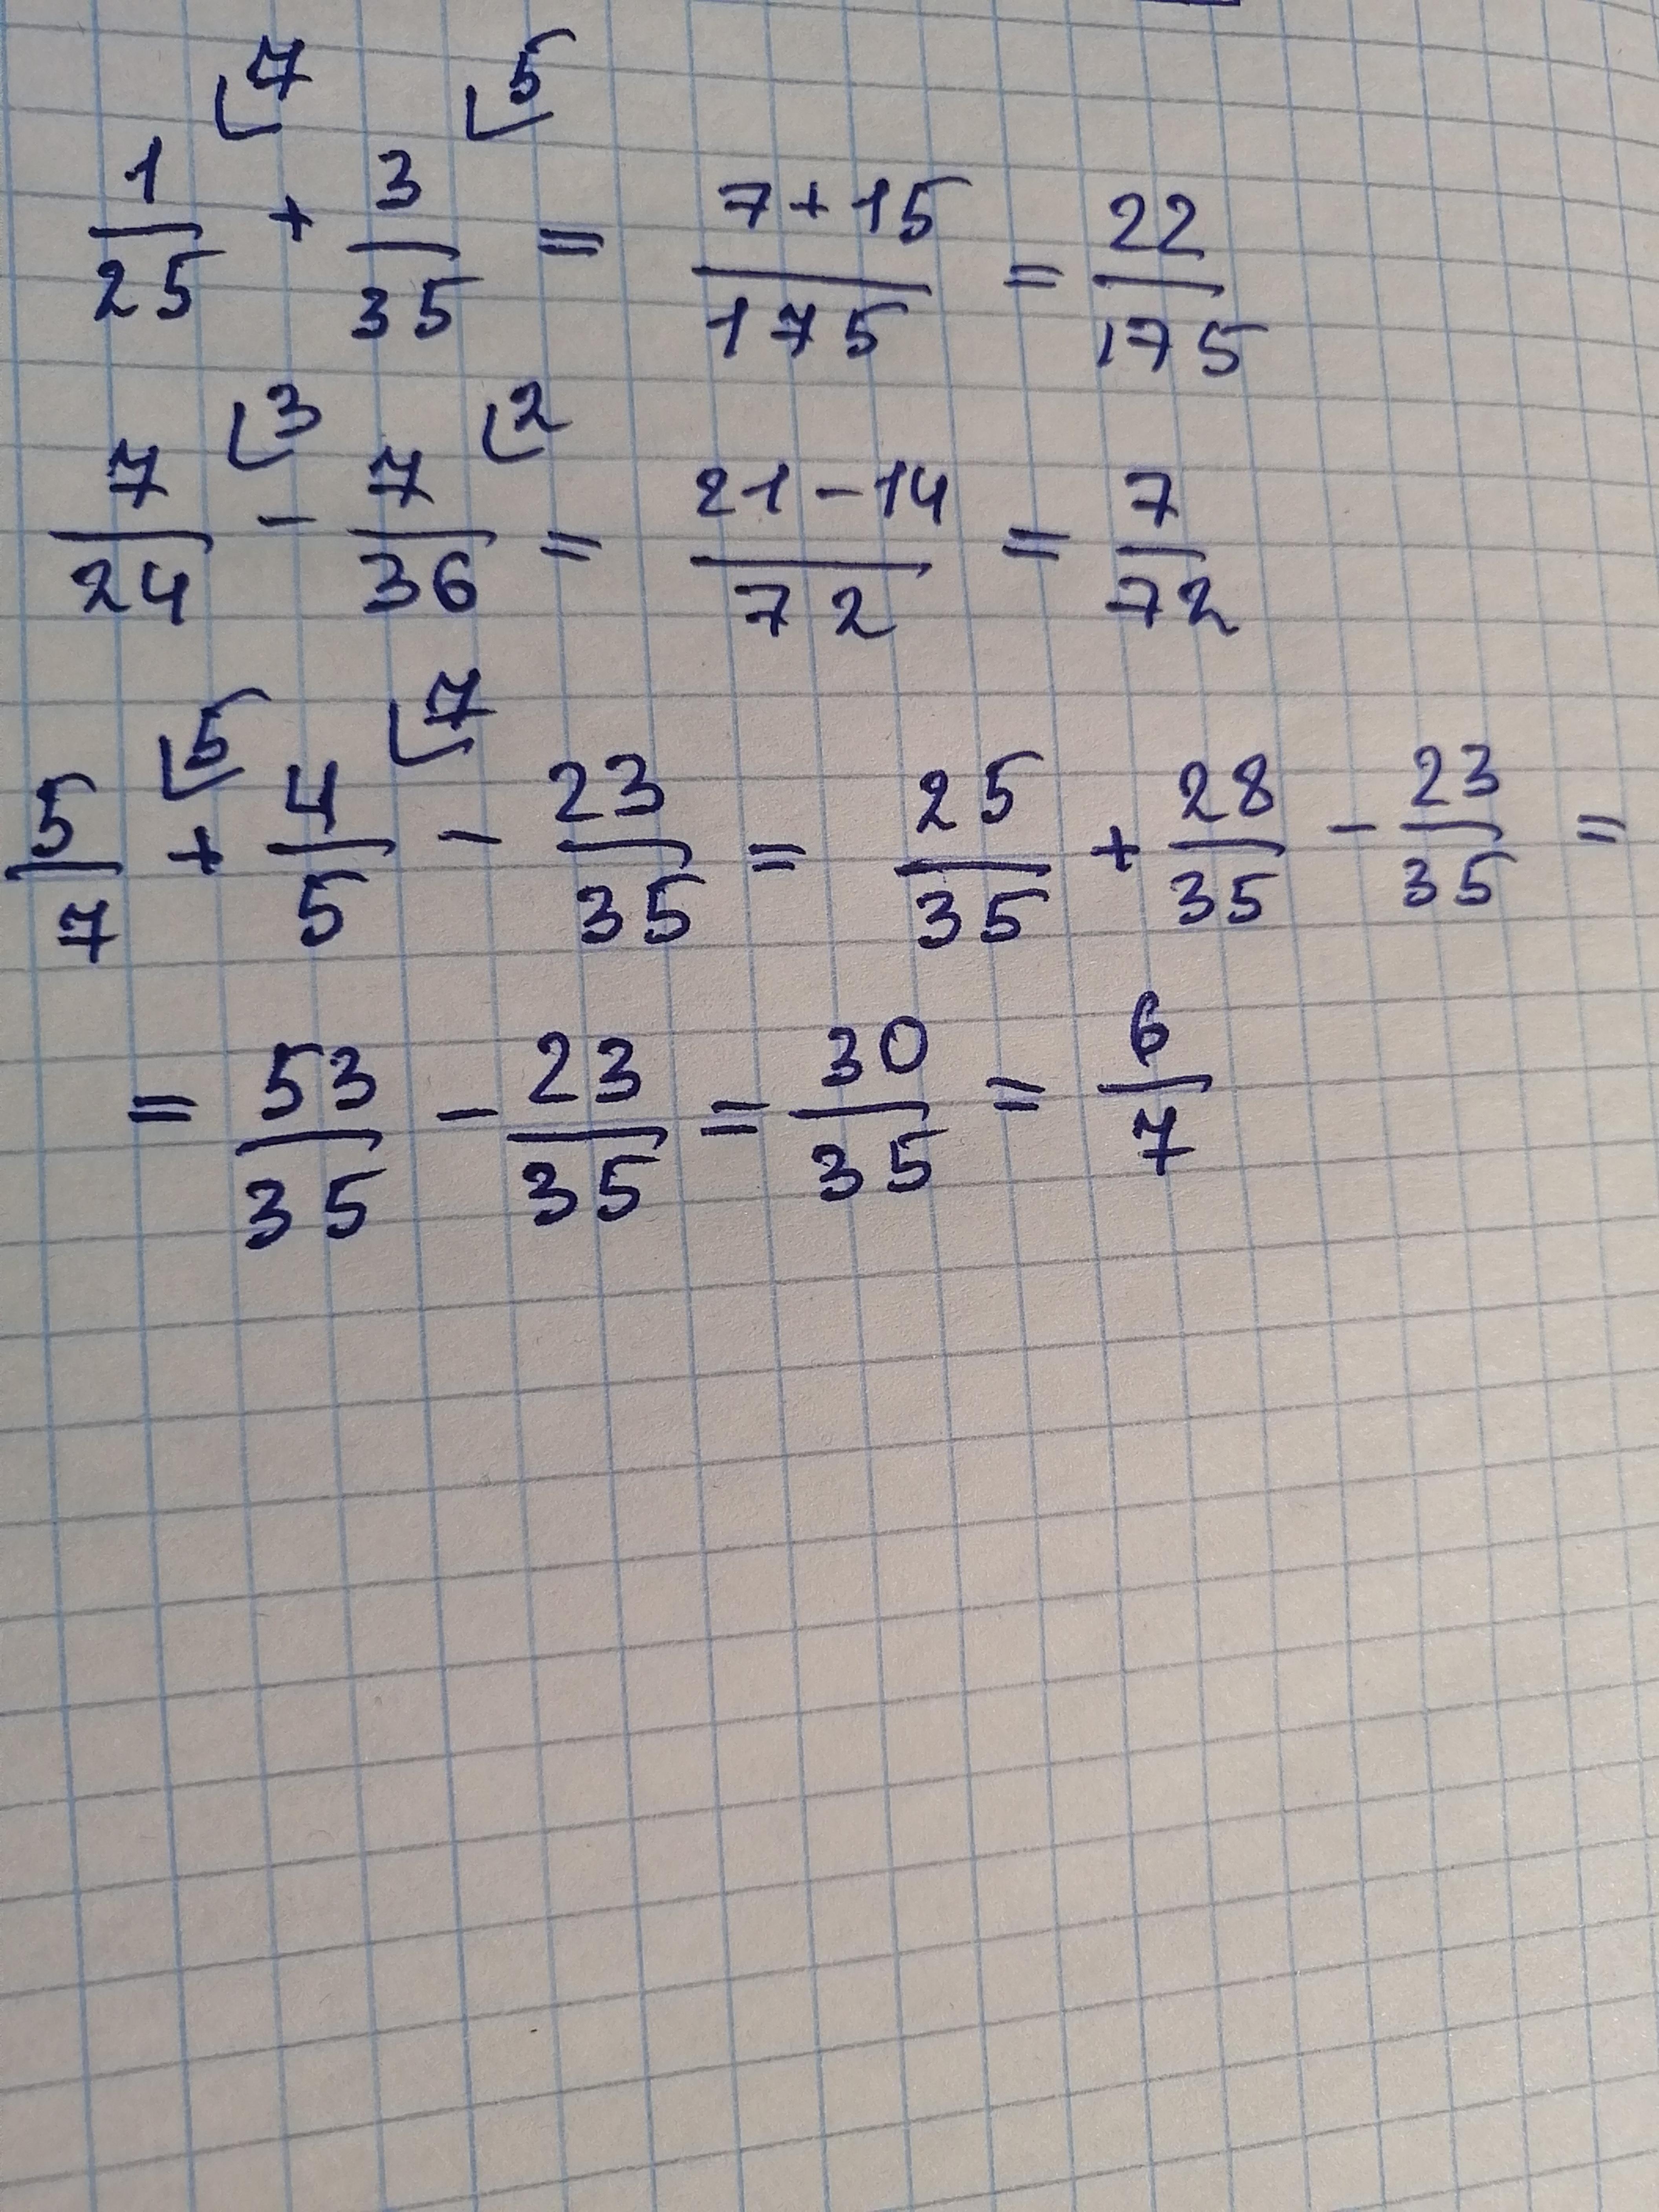 1/25 ⌊7 + 3/35 ⌊5 = 7+15/175 = 22/175
7/24 ⌊3 - 7/36 ⌊2 = 21-14/72 = 7/72
5/7 ⌊5 + 4/5 ⌊7 - 23/35 = 25/35 + 28/35 - 23/35 =
= 53/35 - 23/35 = 30/35 = 6/7